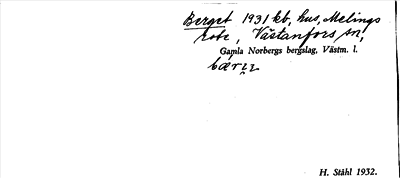 Berget 1931 kb, hus, Melings
rote, Västanfors sn,
Gamla Norbergs bergslag, Västm. l.
H. Ståhl 1932.